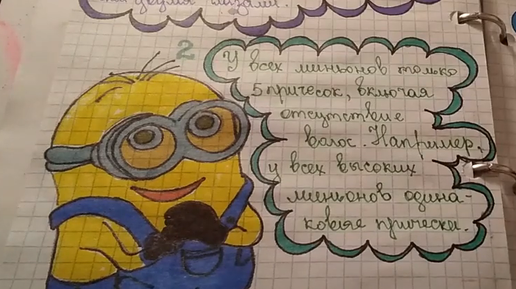 двумя глазами.
2
У всех миньонов только
5 причесок, включая
отсутствие
волос. Например,
у всех высоких
миньонов одина-
ковые прически.